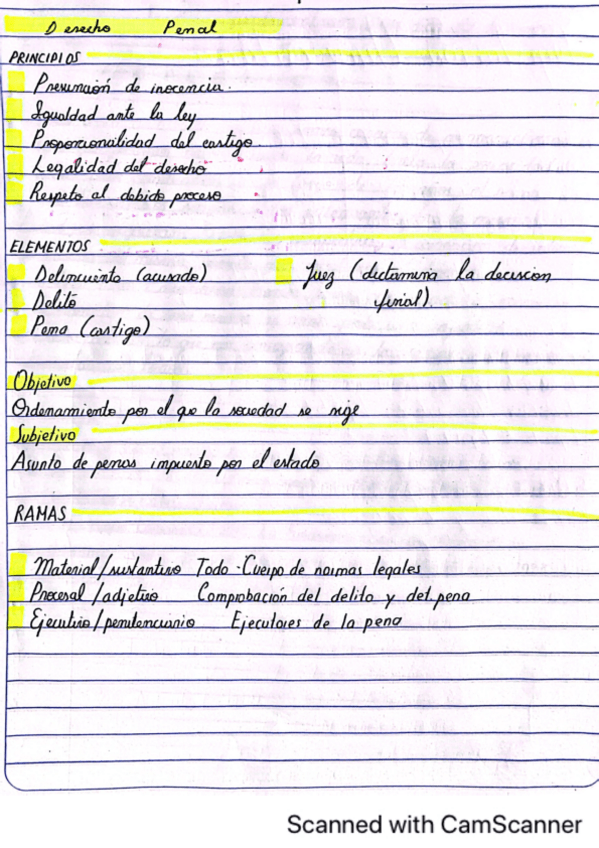 Derecho Penal
PRINCIPIOS
Presunción de inocencia.
Igualdad ante la ley
Proporcionalidad del castigo.
Legalidad del derecho
Respeto al debido proceso
ELEMENTOS
Delincuente (acusado)
Juez (dictamina la decision
final).
Delito
Pena (castigo)
Objetivo
Ordenamiento por el que la sociedad se rige
Subjetivo
Asunto de penas impuesto por el estado
RAMAS
Material/sustantivo Todo-Cuerpo de normas legales
Procesal/adjetivo Comprobación del delito y det. pena
Ejecutivo/penitenciario Ejecutores de la pena
Scanned with CamScanner